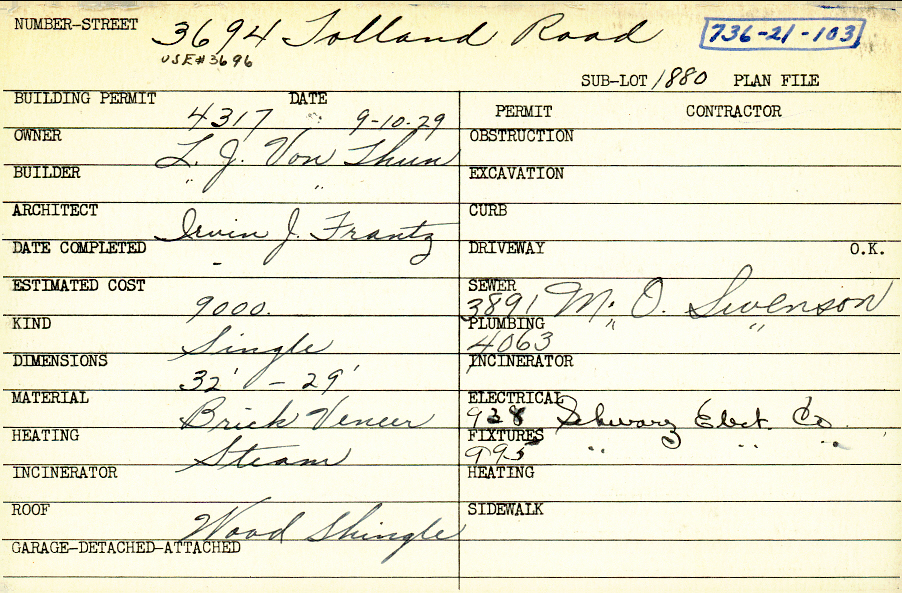 NUMBER-STREET 3694 Tolland Road 736-21-103
USE # 3696
SUB-LOT 1880 PLAN FILE
BUILDING PERMIT 4317 DATE 9-10-29
PERMIT CONTRACTOR
OWNER L. J. Von Thun
OBSTRUCTION
BUILDER " "
EXCAVATION
ARCHITECT Irvin J. Frantz
CURB
DATE COMPLETED -
DRIVEWAY O.K.
ESTIMATED COST 9000.
SEWER 3891 M. O. Swenson
KIND Single
PLUMBING 4063 " "
DIMENSIONS 32' - 29'
INCINERATOR
MATERIAL Brick Veneer
ELECTRICAL 938 Schwarz Elect. Co.
HEATING Steam
FIXTURES 995 " " "
INCINERATOR
HEATING
ROOF Wood Shingle
SIDEWALK
GARAGE-DETACHED-ATTACHED